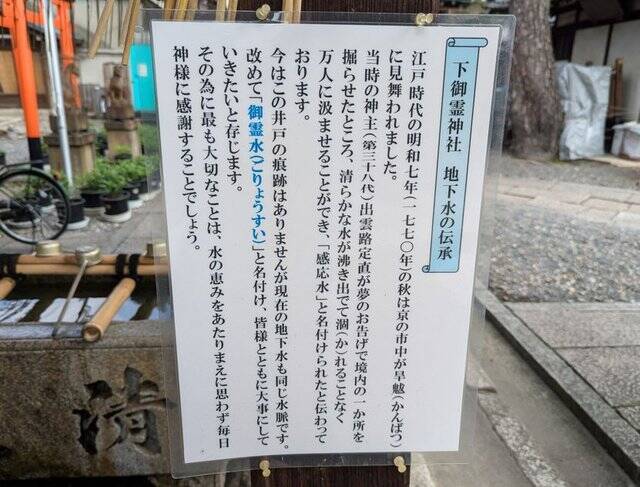 下御霊神社 地下水の伝承
江戸時代の明和七年(一七七〇年)の秋は京の市中が旱魃(かんばつ)
に見舞われました。
当時の神主(第三十八代)出雲路定直が夢のお告げで境内の一か所を
掘らせたところ、清らかな水が沸き出でて涸(か)れることなく
万人に汲ませることができ、「感応水」と名付けられたと伝わって
おります。
今はこの井戸の痕跡はありませんが現在の地下水も同じ水脈です。
改めて「御霊水(ごりょうすい)」と名付け、皆様とともに大事にして
いきたいと存じます。
その為に最も大切なことは、水の恵みをあたりまえに思わず毎日
神様に感謝することでしょう。
清